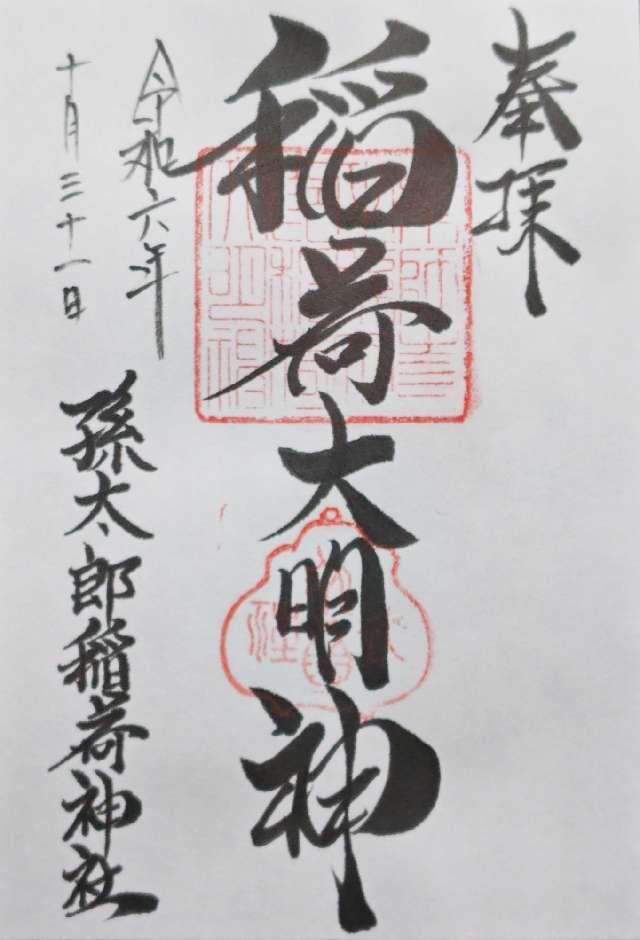 奉拝
稲荷大明神
令和六年
十月三十一日
孫太郎稲荷神社